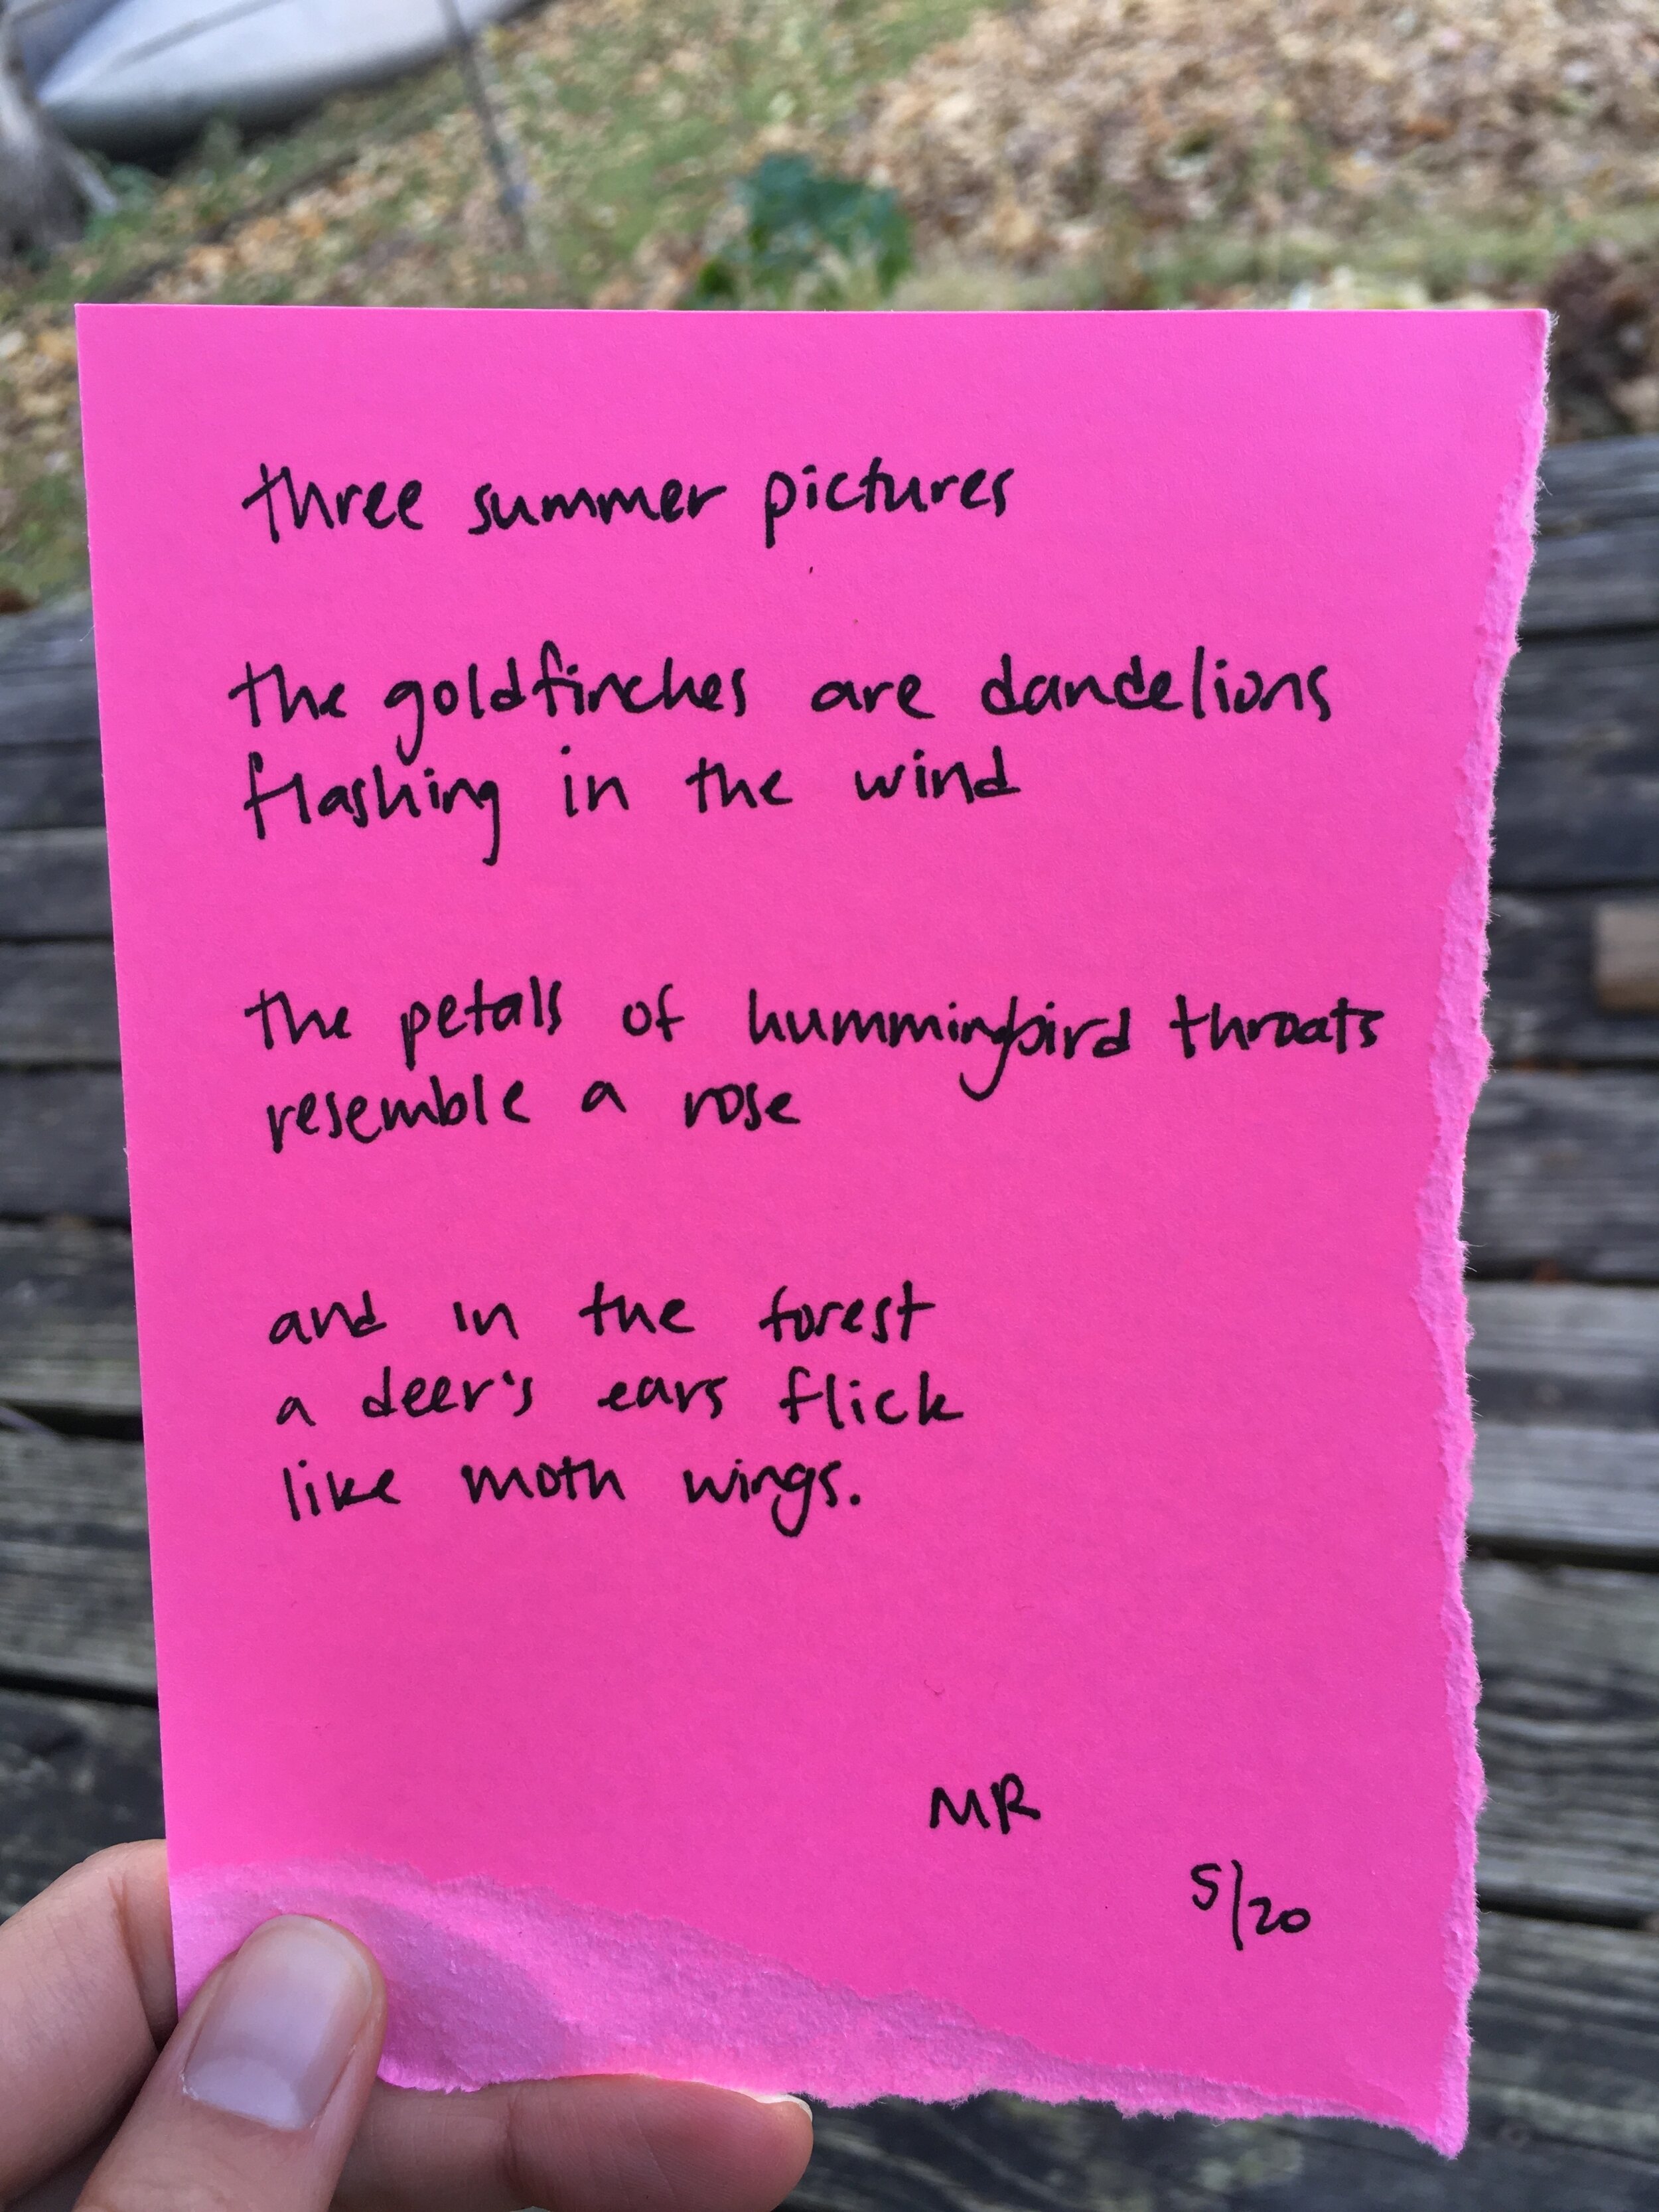 three summer pictures
the goldfinches are dandelions
flashing in the wind
the petals of hummingbird throats
resemble a rose
and in the forest
a deer's ears flick
like moth wings.
MR
5/20